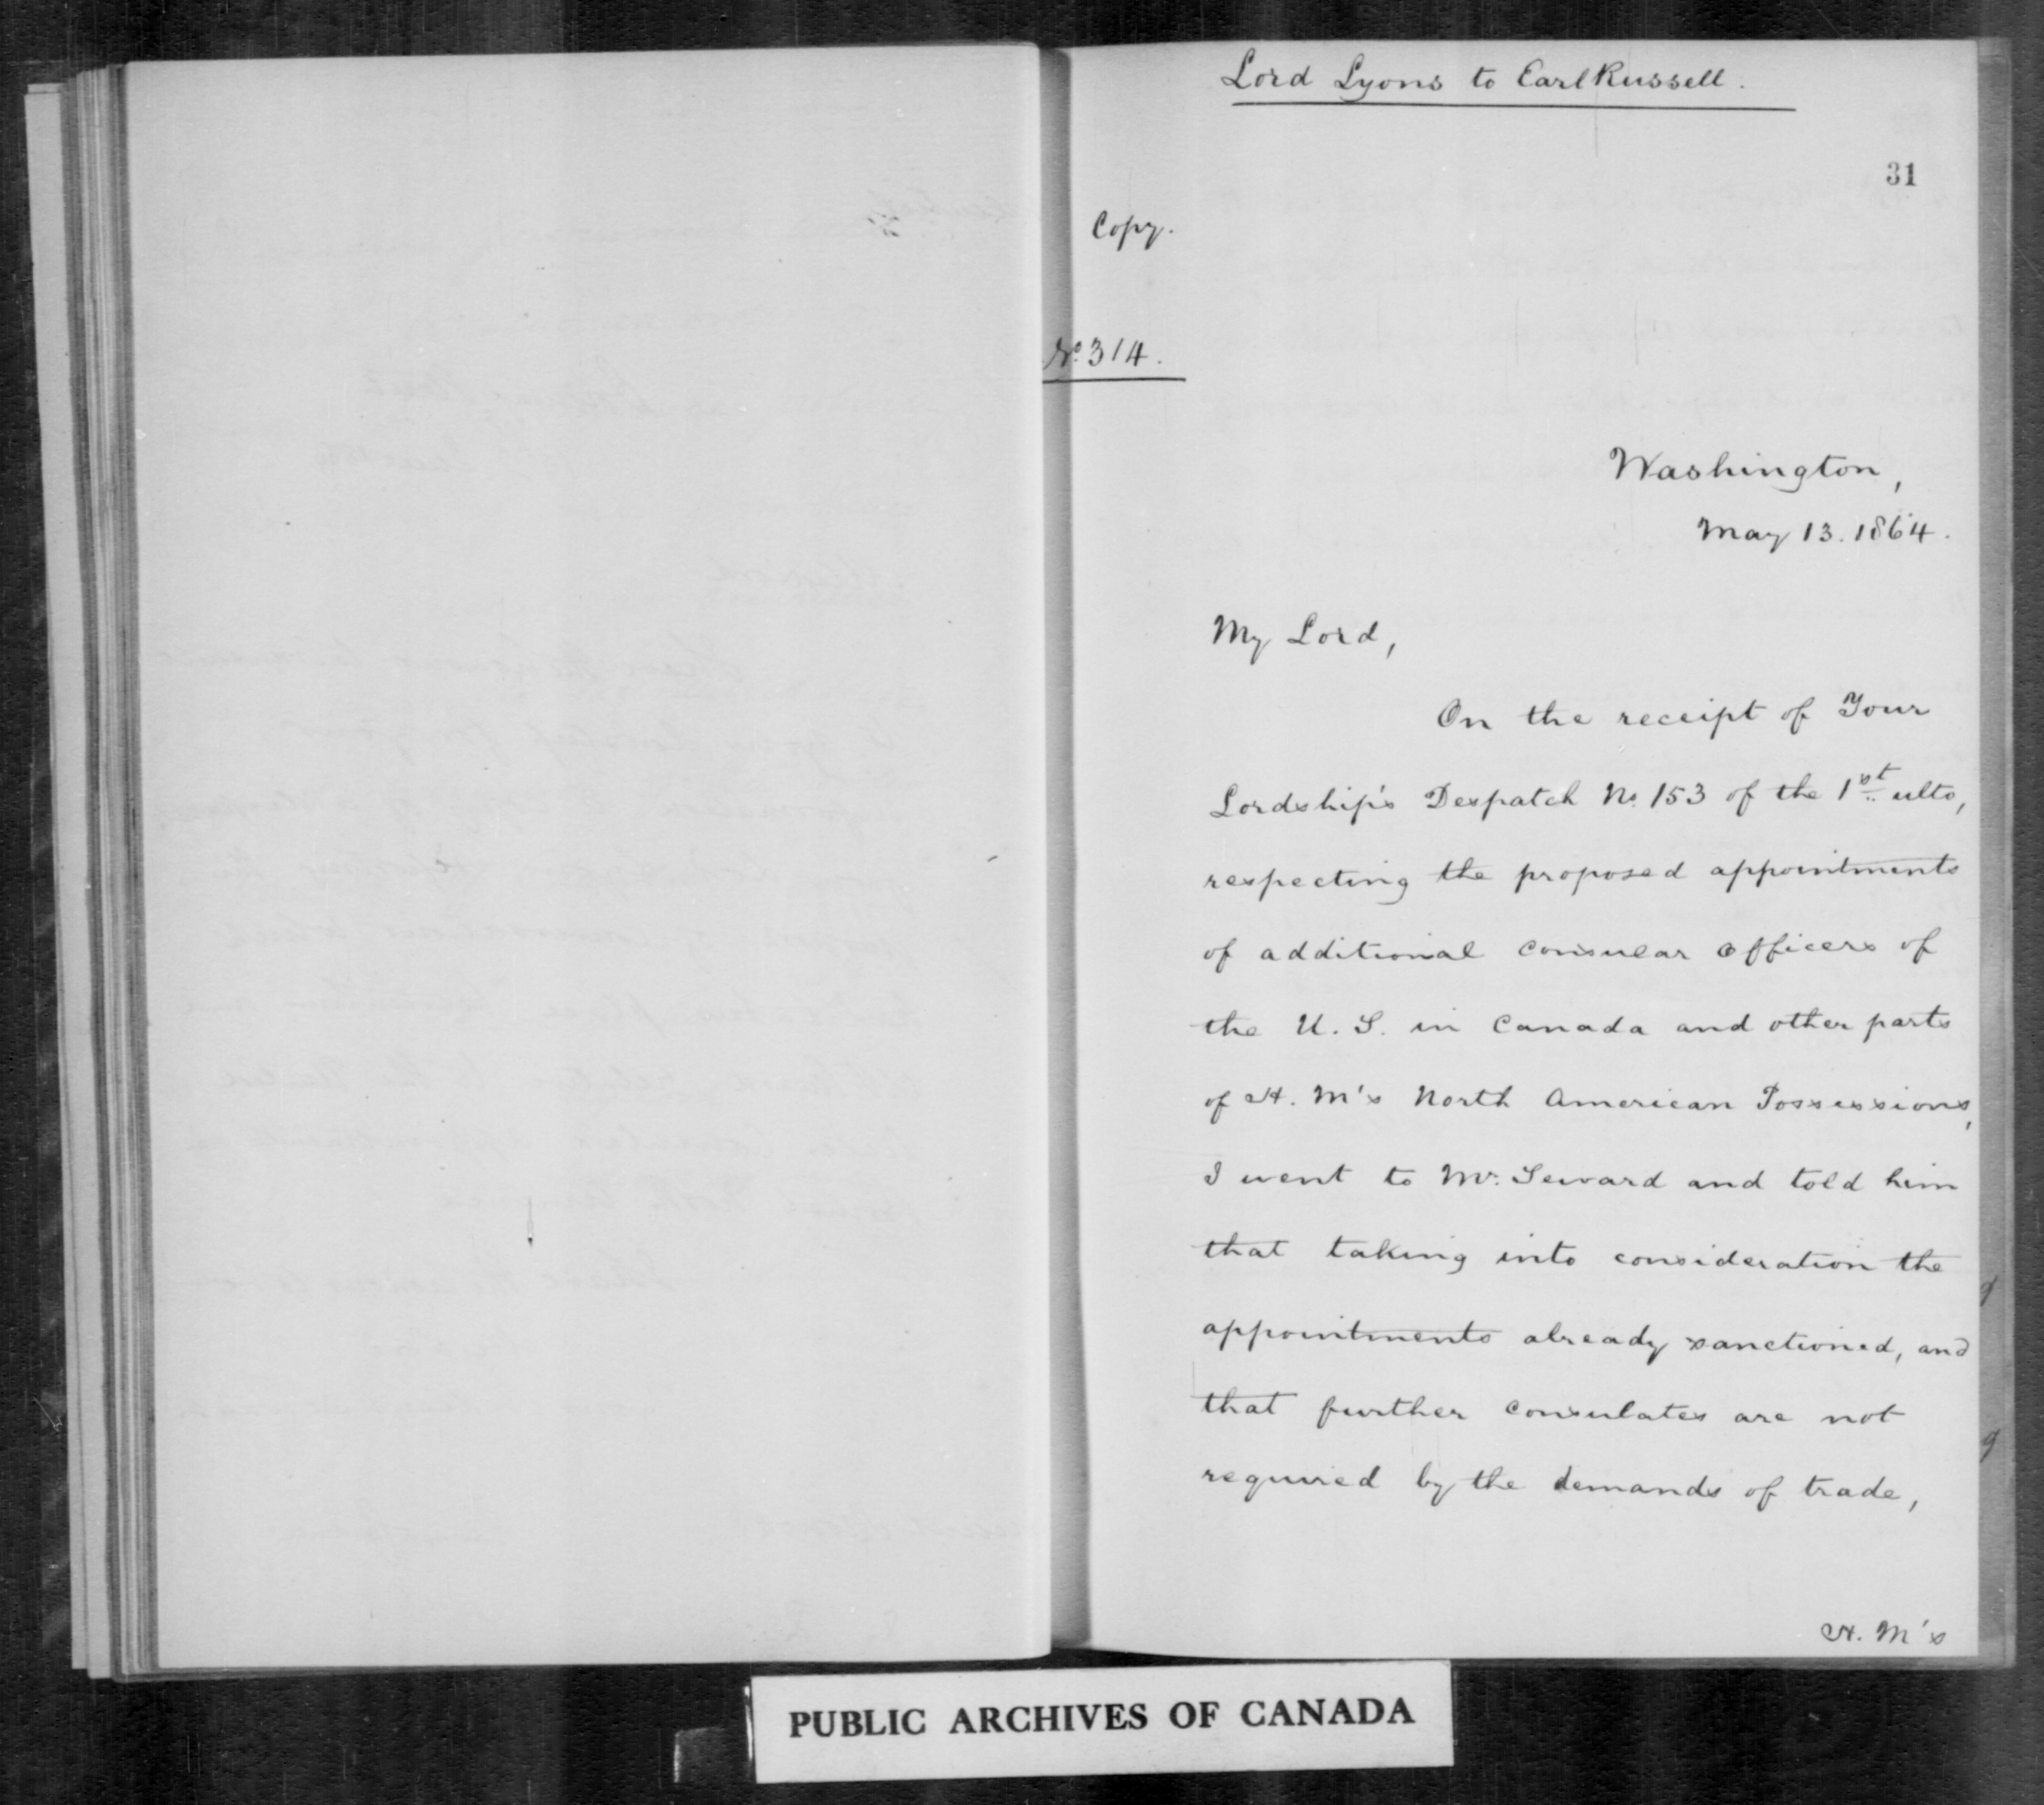 Lord Lyons to Earl Russell.
31
Copy.
No. 314.
Washington,
May 13. 1864.
My Lord,
On the receipt of Your
Lordship's Despatch No. 153 of the 1st ulto,
respecting the proposed appointments
of additional consular officers of
the U. S. in Canada and other parts
of H. M's North American Possessions,
I went to Mr. Seward and told him
that taking into consideration the
appointments already sanctioned, and
that further consulates are not
required by the demands of trade,
H. M's
PUBLIC ARCHIVES OF CANADA